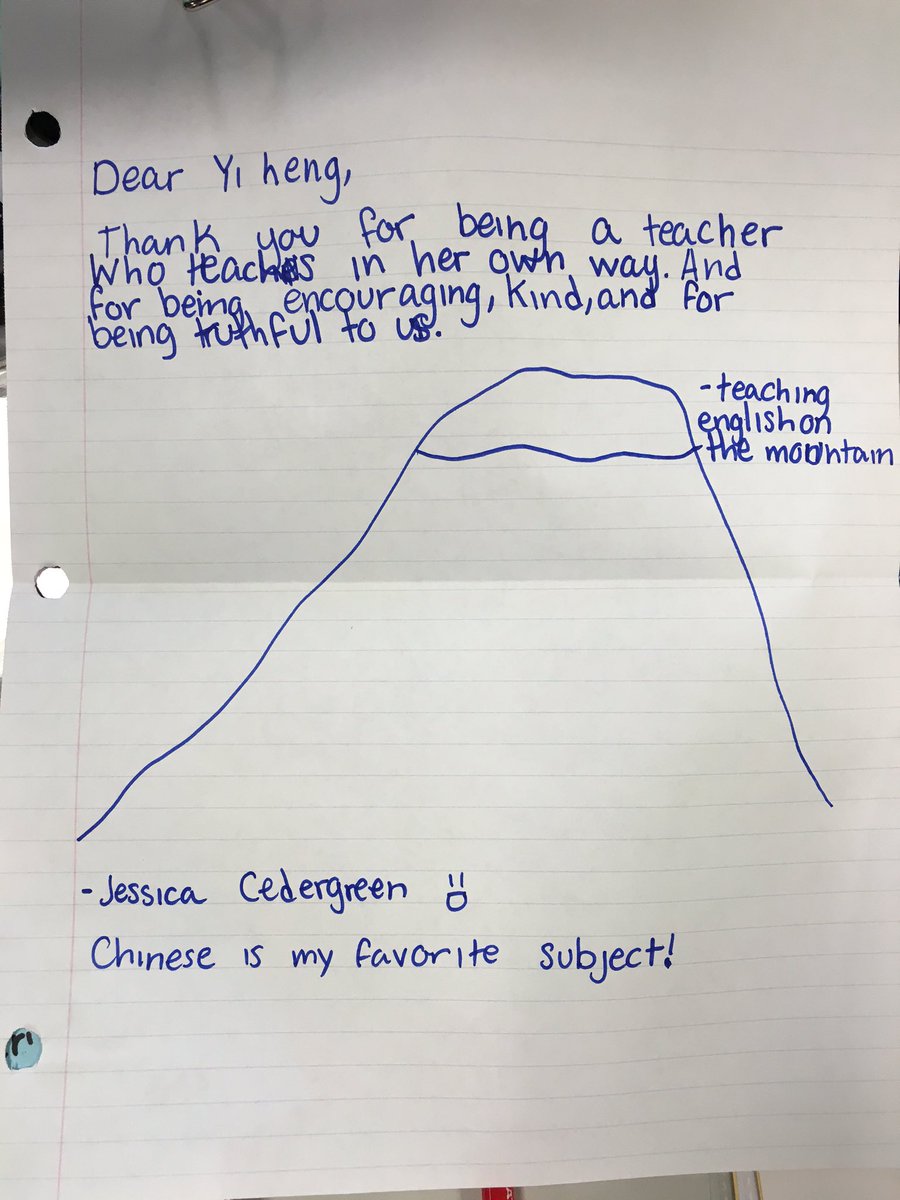 Dear Yi heng,
Thank you for being a teacher
who teaches in her own way. And
for being, encouraging, kind, and for
being truthful to us.
-teaching
english on
the mountain
-Jessica Cedergreen
Chinese is my favorite subject!
r'